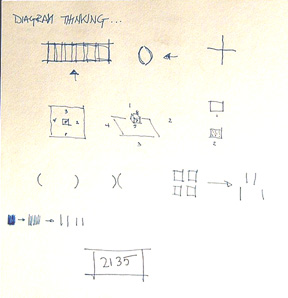 DIAGRAM THINKING...
3
4 2
1
1
4 2
3
1
2
2135